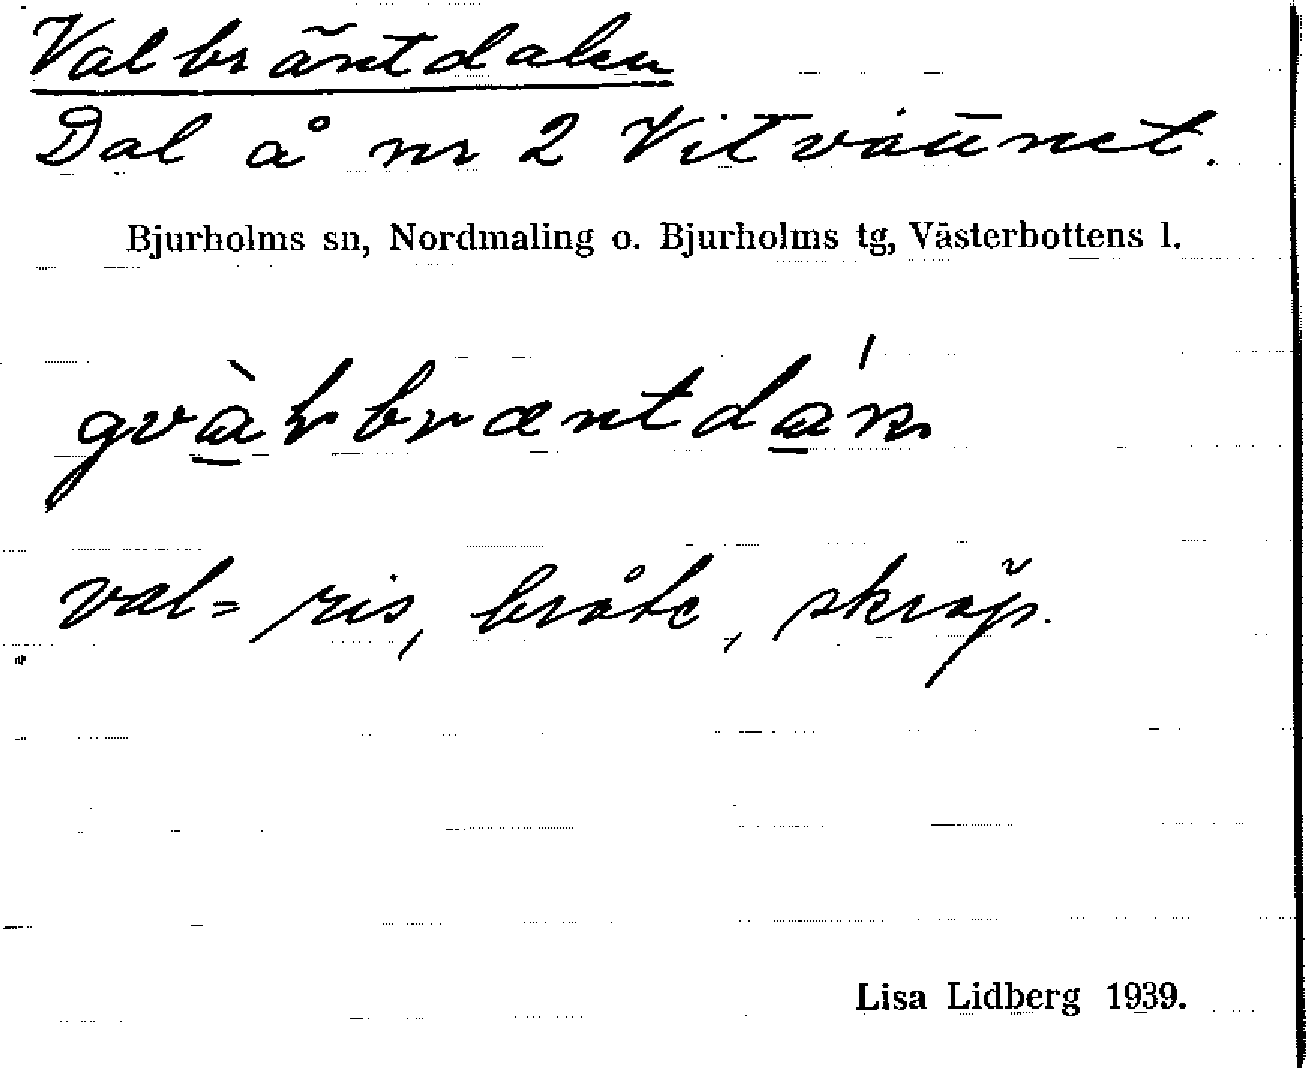 Valbräntdalen
Dal å nr 2 Vitvattnet.
Bjurholms sn, Nordmaling o. Bjurholms tg, Västerbottens l.
val = ris, bråte, skräp.
Lisa Lidberg 1939.